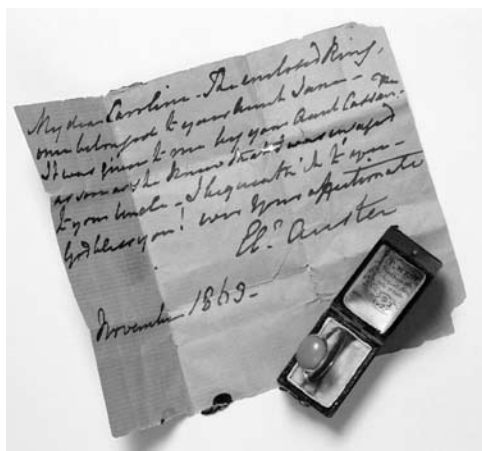 My dear Caroline - The enclosed Ring,
once belonged to your Aunt Jane -
It was given to me by your Aunt Cassan-
as soon as she knew that I was engaged
to your Uncle - I bequeath it to you -
God bless you! ever yours affectionate
Austen
November 1863 -